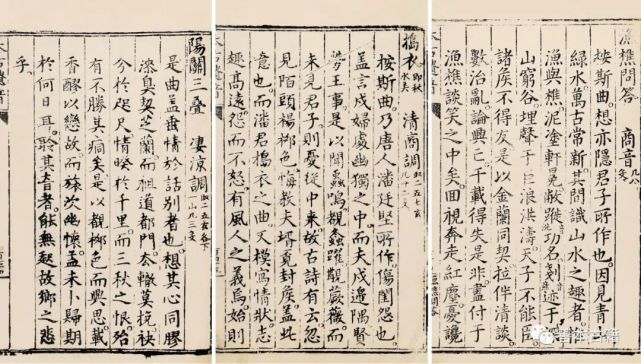 漁樵問答 商音
按斯曲。想亦隱君子所作也。因見青
綠水。萬古常新。其間識山水之趣者。
漁與樵。泥塗軒冕。敝蓰功名。剗迹于
山窮谷。埋聲于巨浪洪濤。天子不能臣。
諸矦不得友。是以金蘭同契。拉伴清談。
數治亂。論興亡。千載得失是非。盡付于
漁樵談笑之中矣。回視奔走紅塵。憂讒
搗衣 即秋水 清商調
按斯曲。乃唐人潘廷堅所作。傷閨怨也。
盖言戍婦處幽獨之中。而夫戍邊隅。賢
勞王事。是以聞蟲鳴。觀螽躍。觀蕨薇。而
未見君子。則憂從中來。故古詩有云。忽
見陌頭楊柳色。悔教夫壻覓封矦。盖此
意也。而潘君搗衣之曲。又模寫情狀。志
趣高遠。怨而不怒。有風人之義焉。始則
太古遺音
陽關三叠 淒涼調
是曲盖垂情於話別者也。想其心同膠
漆。臭契芝蘭。而祖道都門。奈轍莫挽。袂
分於咫尺。情暌於千里。而三秋之恨。殆
有不勝其痾矣。是以覩柳色而興思。載
香醪以戀故。而旅次幽懷。盖未卜歸期
於何日耳。聆其音者。能無起故鄉之悲
乎。
太古遺音